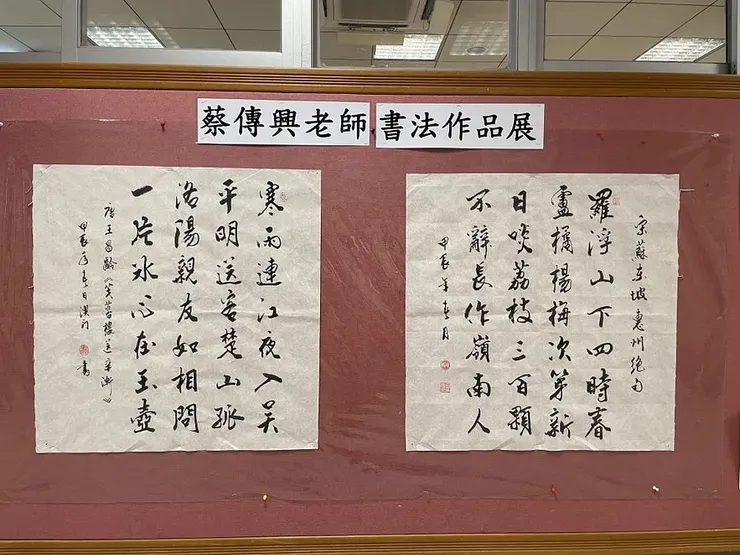 蔡傳興老師 書法作品展
寒雨連江夜入吳
平明送客楚山孤
洛陽親友如相問
一片冰心在玉壺
唐王昌齡《芙蓉樓送辛漸》
甲辰年春日 書
宋蘇東坡惠州絕句
羅浮山下四時春
盧橘楊梅次第新
日啖荔枝三百顆
不辭長作嶺南人
甲辰年春月